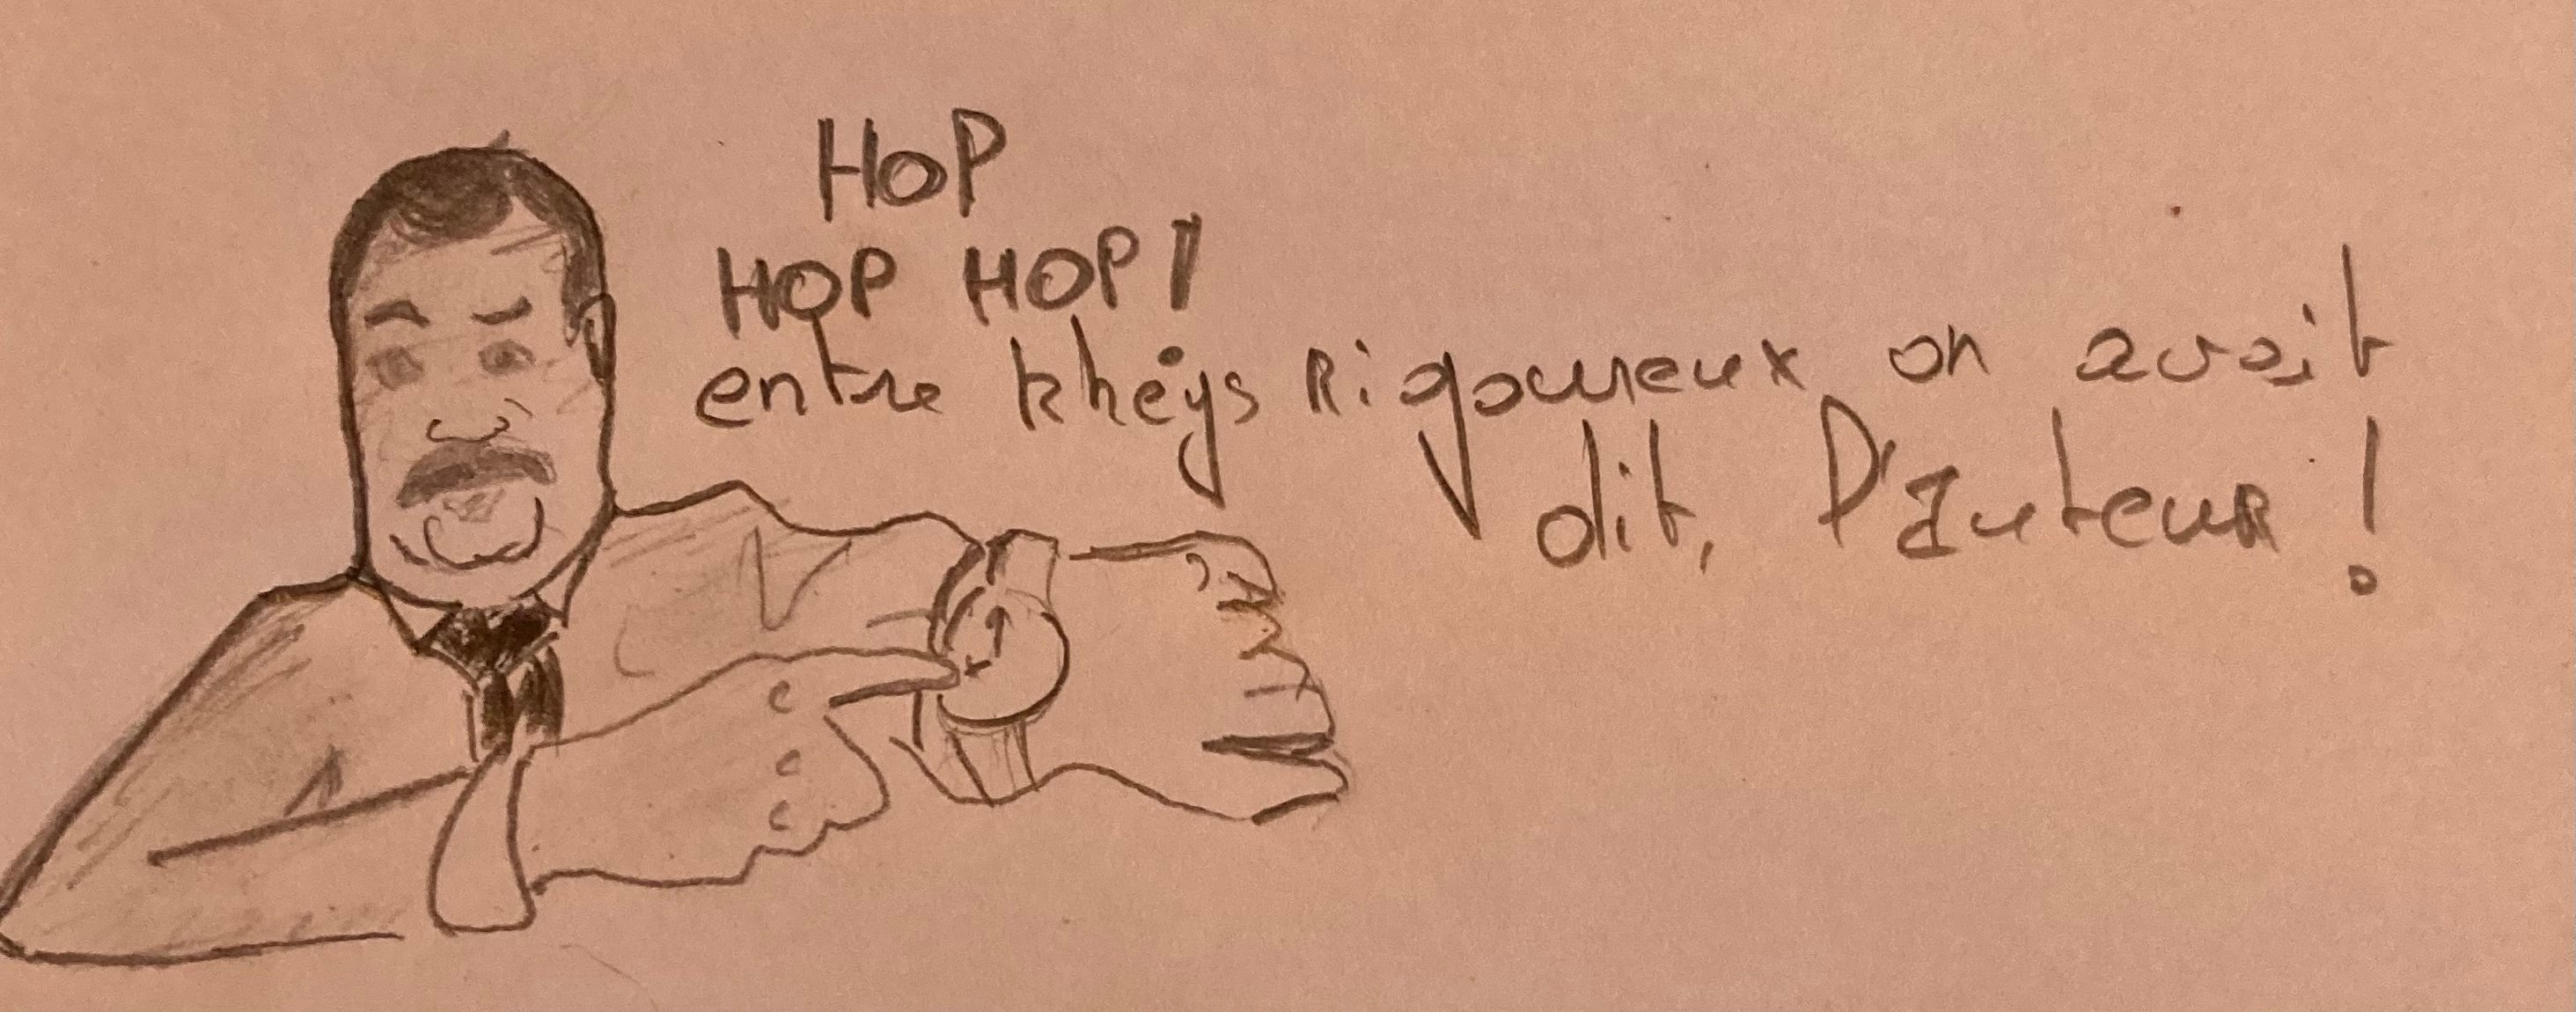 HOP
HOP HOP!
entre kheys Rigoureux on avait
dit, l'auteur !